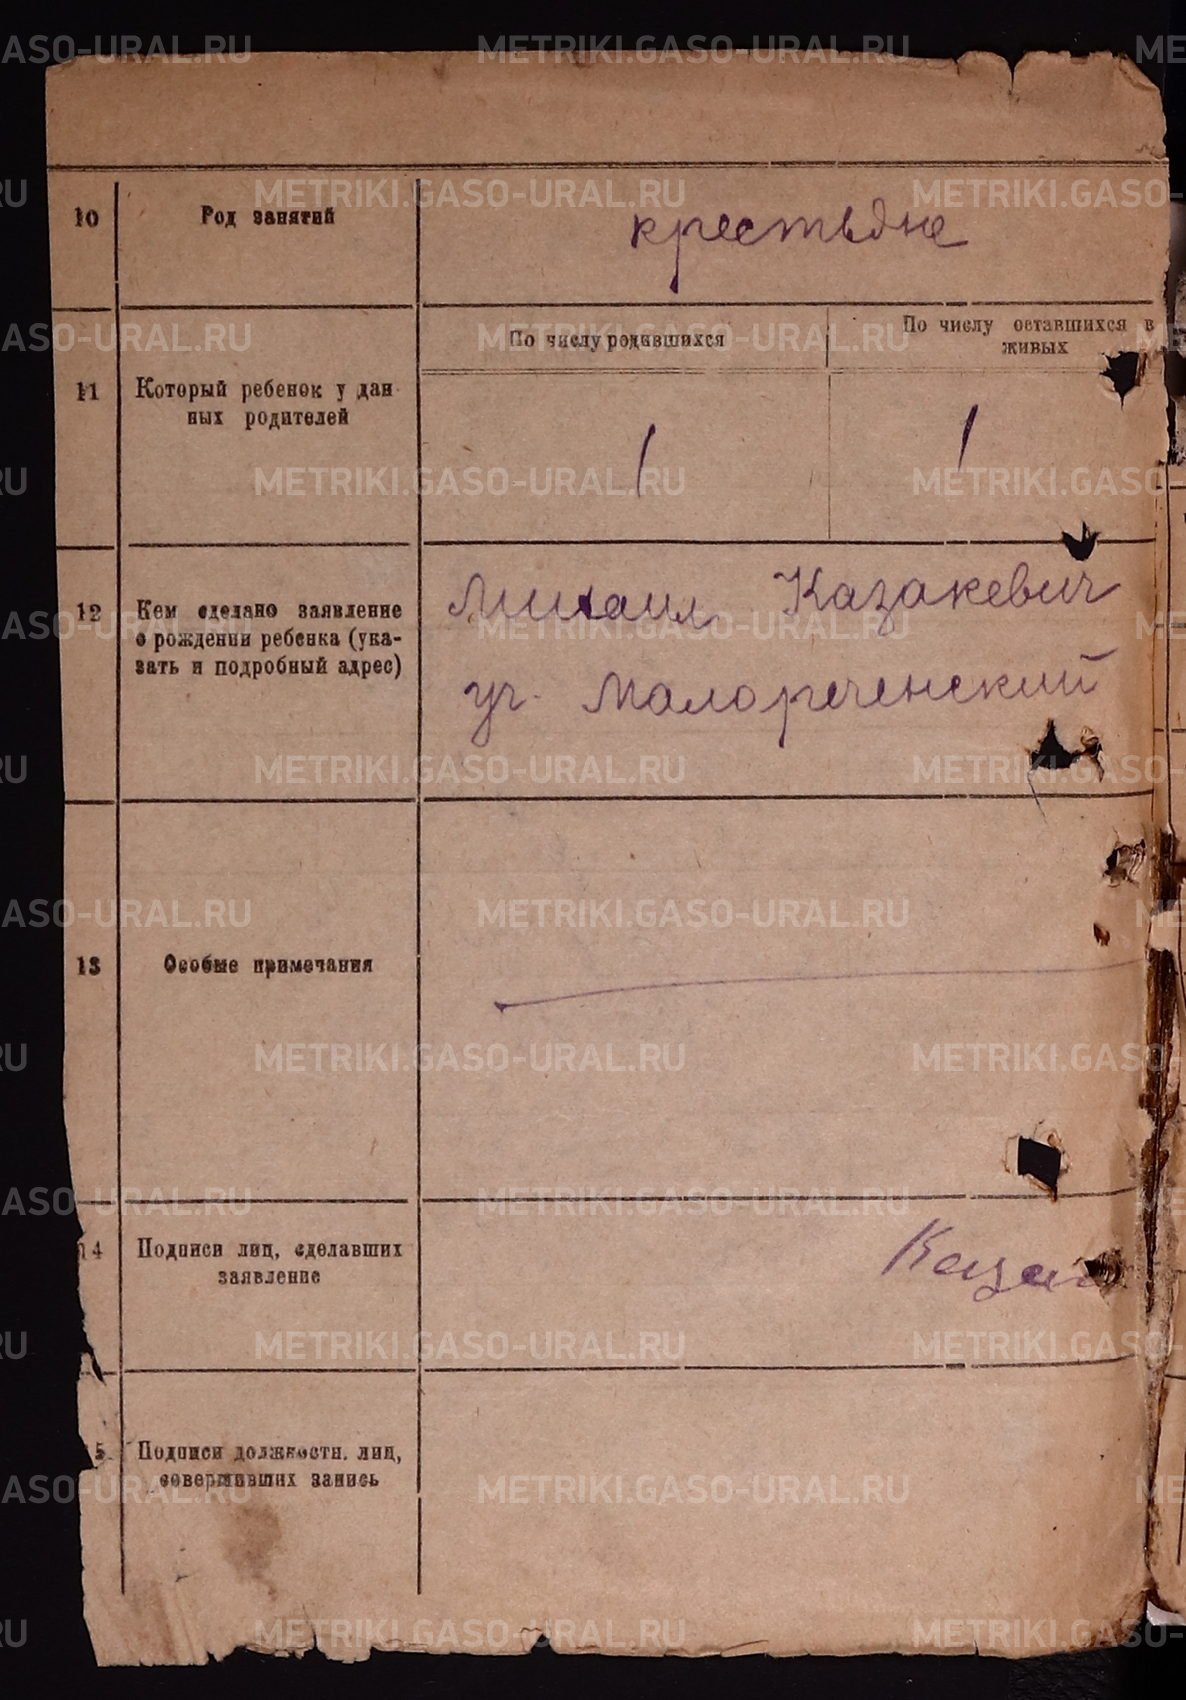 10
Род занятий
крестьяне
По числу родившихся
По числу оставшихся в
живых
11
Который ребенок у дан
ных родителей
1
1
12
Кем сделано заявление
о рождении ребенка (ука-
зать и подробный адрес)
Михаил Казакевич
уч. Малореченский
13
Особые примечания
14
Подписи лиц, сделавших
заявление
Каза
5
Подписи должностн. лиц,
совершивших запись
METRIKI.GASO-URAL.RU